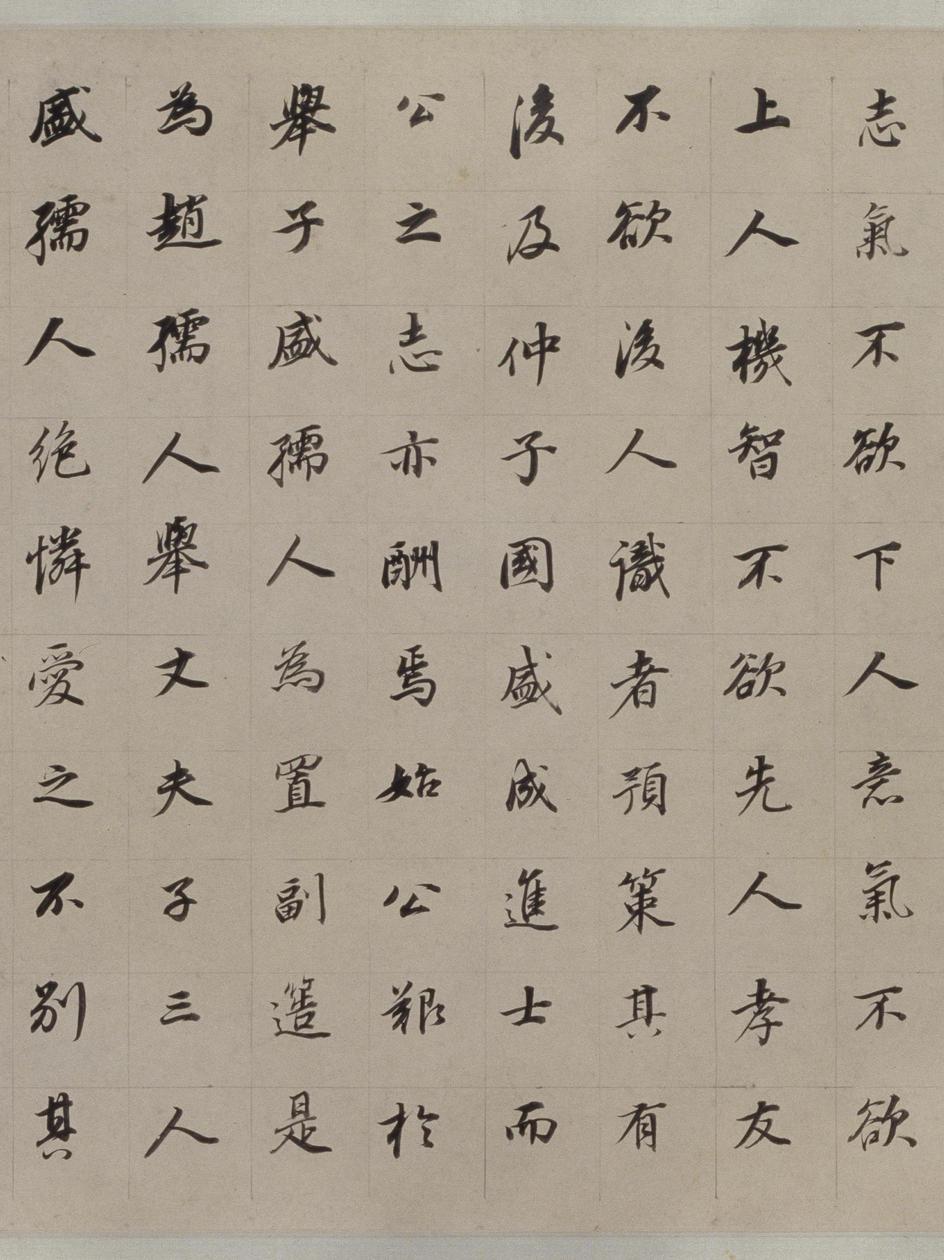 志氣不欲下人意氣不欲
上人機智不欲先人孝友
不欲後人識者預策其有
後及仲子國盛成進士而
公之志亦酬焉始公艱於
舉子盛孺人為置副簉是
為趙孺人舉丈夫子三人
盛孺人絶憐愛之不別其